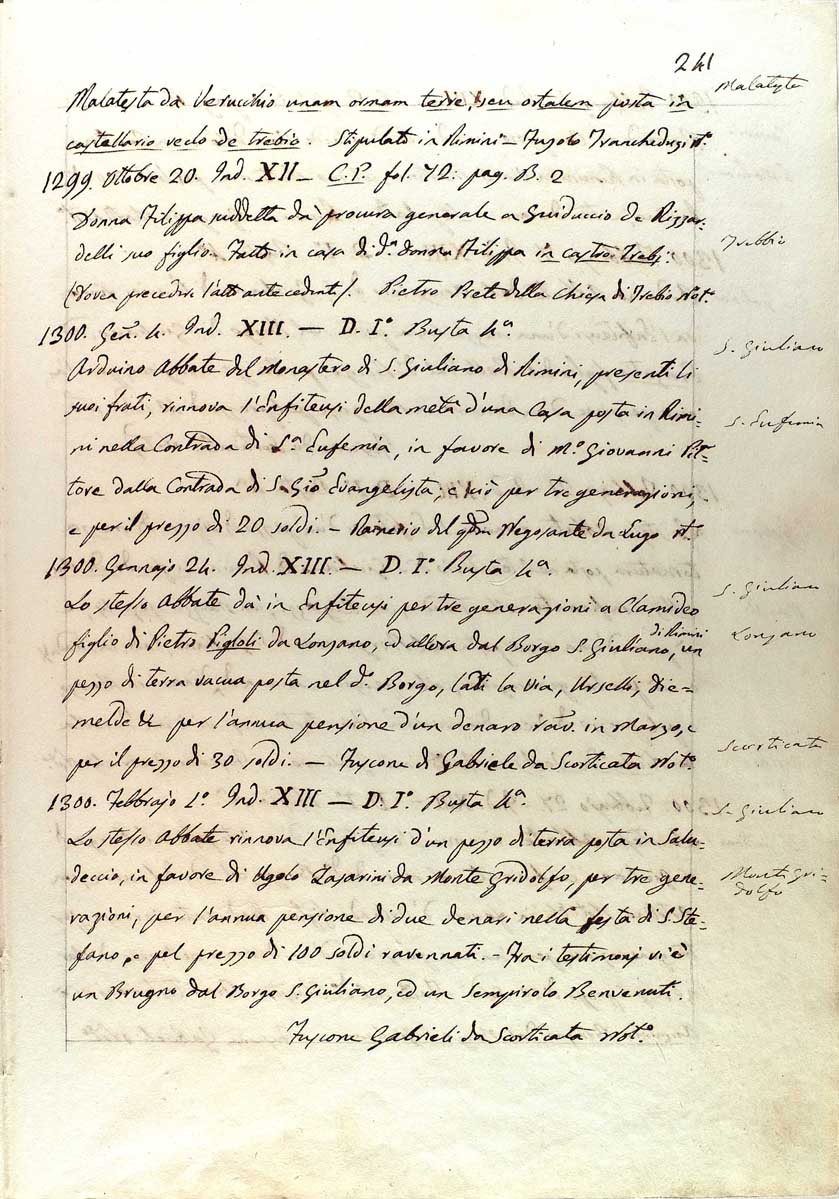 241
Malatesta
Malatesta da Verucchio unam ornam terre, seu ortalem posta in
castellario veclo de trebio. Stipulato in Rimini – Fusolo Trancheduzi N.º
1299. Ottobre 20. Ind. XII – C.P. fol. 72. pag. B. 2
Donna Filippa suddetta dà procura generale a Guiduccio de Rizzar-
Trebbio
delli suo figlio. Fatto in casa di d.ª donna Filippa in castro Trebj.
(Dovea precedere l'atto antecedente). Pietro Prete della Chiesa di Trebio Not.º
1300. Gen. 4. Ind. XIII. – D. I.º Busta 4.ª
S. Giuliano
Arduino Abbate del Monastero di S. Giuliano di Rimini, presenti li
suoi frati, rinnova l'Enfiteusi della metà d'una Casa posta in Rimi-
S. Eufemia
ni nella Contrada di S.ª Eufemia, in favore di M.º Giovanni Pit-
tore dalla Contrada di S. Gio. Evangelista; e ciò per tre generazioni,
e per il prezzo di 20 soldi. – Rainerio del qdm Negosante da Lugo Nt.
1300. Gennajo 24. Ind. XIII. – D. I.º Busta 4.ª
S. Giuliano
Lo stesso Abbate dà in Enfiteusi per tre generazioni a Clamideo
Lonzano
figlio di Pietro Pigloli da Lonzano, ed allora dal Borgo S. Giuliano di Rimini, un
pezzo di terra vacua posta nel d.º Borgo, lati la Via, Urselli, Die-
melde & per l'annua pensione d'un denaro rav. in Marzo, e
Scorticata
per il prezzo di 30 soldi. – Fuscone di Gabriele da Scorticata Not.º
1300. Febbrajo 1.º Ind. XIII – D. I.º Busta 4.ª
S. Giuliano
Lo stesso Abbate rinnova l'Enfiteusi d'un pezzo di terra posta in Salu-
Monte Gri-
dolfo
deccio, in favore di Ugolo Lazarini da Monte Gridolfo, per tre gene-
razioni, per l'annua pensione di due denari nella festa di S. Ste-
fano, e pel prezzo di 100 soldi ravennati. – Fra i testimonj vi è
un Brugno dal Borgo S. Giuliano, ed un Sempirolo Benvenuti.
Fuscone Gabrieli da Scorticata Not.º